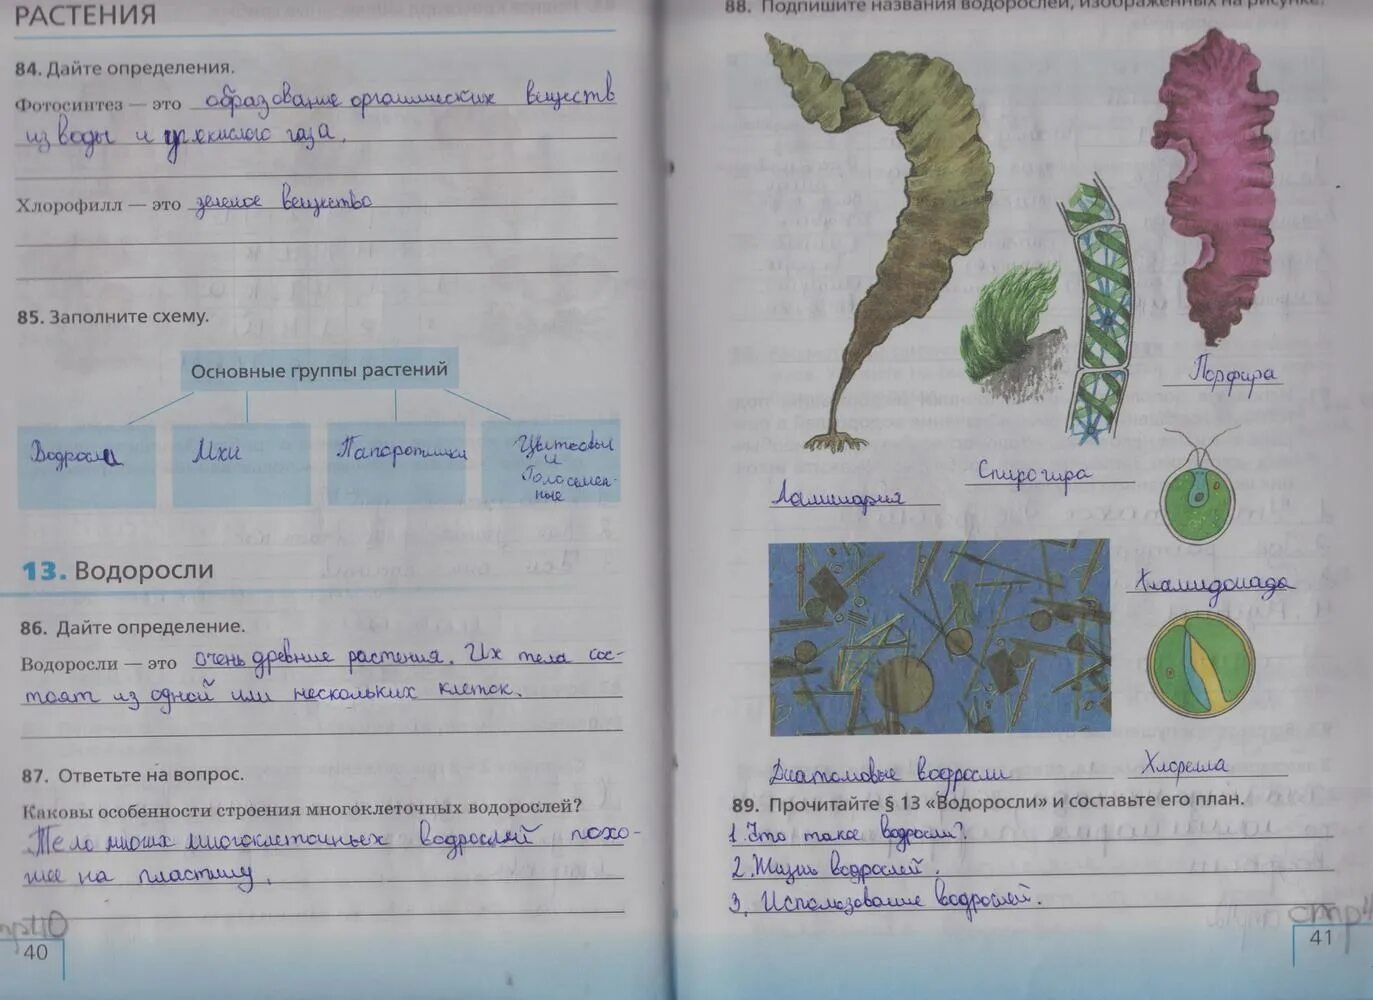 РАСТЕНИЯ
84. Дайте определения.
Фотосинтез — это образование органических веществ
из воды и углекислого газа.
Хлорофилл — это зеленое вещество
85. Заполните схему.
Основные группы растений
Водоросли
Мхи
Папоротники
Цветковые
и
Голосемен-
ные
13. Водоросли
86. Дайте определение.
Водоросли — это очень древние растения. Их тела сос-
тоят из одной или нескольких клеток.
87. Ответьте на вопрос.
Каковы особенности строения многоклеточных водорослей?
Тело многих многоклеточных водорослей похо-
жее на пластину.
стр40
40
88. Подпишите названия водорослей, изображённых на рисунке.
Порфира
Спирогира
Ламинария
Хламидонада
Диатомовые водросли
Хлорелла
89. Прочитайте § 13 «Водоросли» и составьте его план.
1. Что такое водросли?
2. Жизнь водрослей.
3. Использование водрослей.
стр4
41